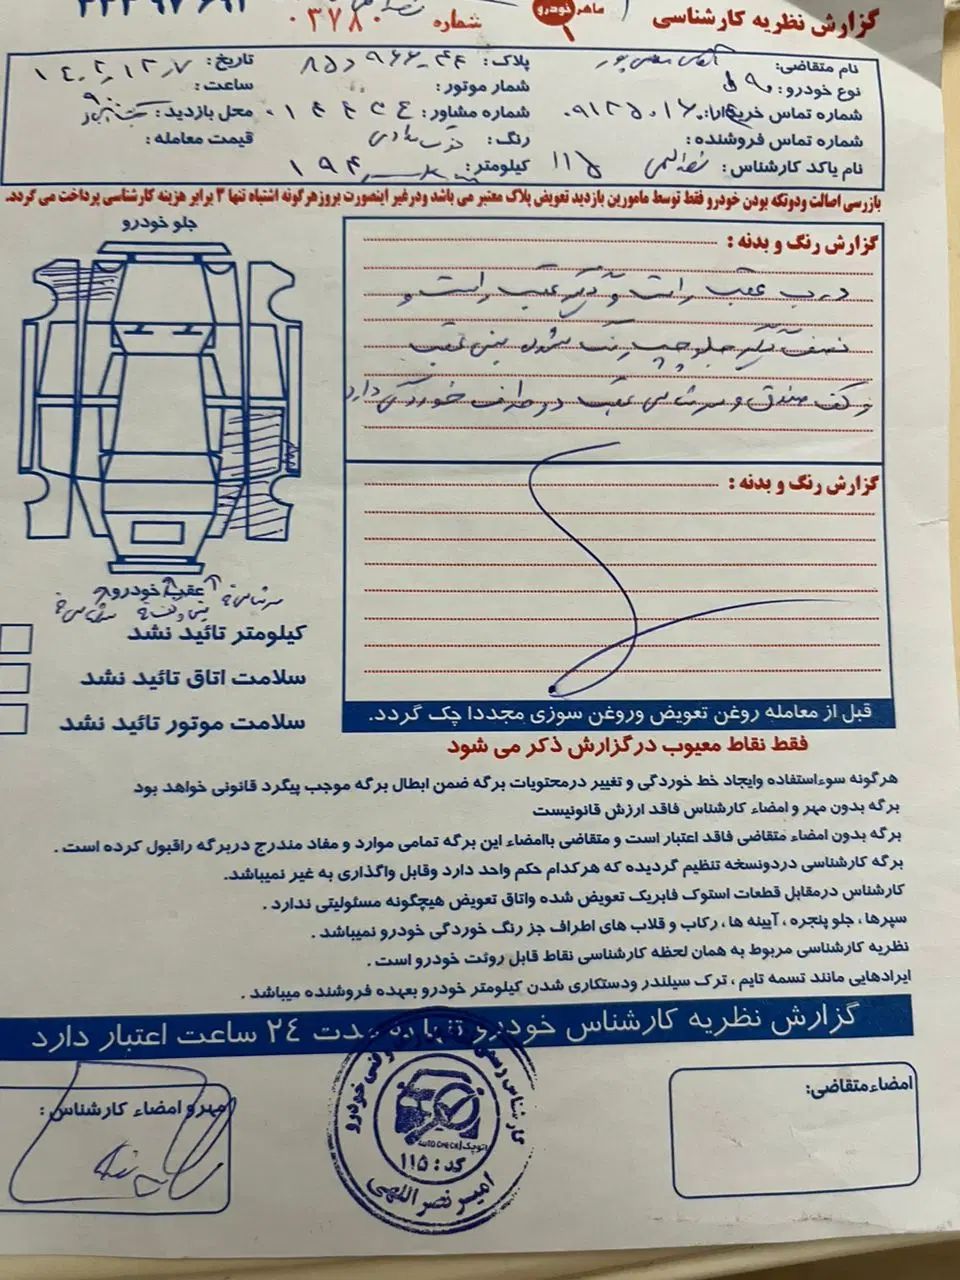 گزارش نظریه کارشناسی
ماهر خودرو
شماره ۰۳۷۸۰
نام متقاضی:
نوع خودرو: ال ۹۰
شماره تماس خریدار:
شماره تماس فروشنده:
نام یا کد کارشناس: نصراللهی ۱۱۵
پلاک:
شمار موتور:
شماره مشاور:
رنگ:
کیلومتر:
تاریخ: ۱۴۰۲,۱۲,۷
ساعت:
محل بازدید:
قیمت معامله:
بازرسی اصالت ودوتکه بودن خودرو فقط توسط مامورین بازدید تعویض پلاک معتبر می باشد ودرغیر اینصورت بروزهرگونه اشتباه تنها ۳ برابر هزینه کارشناسی پرداخت می گردد.
جلو خودرو
گزارش رنگ و بدنه :
درب عقب راست و گلگیر عقب راست و
نصف گلگیر جلو چپ رنگ شده سینی عقب
و کف صندوق و سرشاسی عقب دو طرف خوردگی دارد
گزارش رنگ و بدنه :
عقب خودرو
کیلومتر تائید نشد
سلامت اتاق تائید نشد
سلامت موتور تائید نشد
قبل از معامله روغن تعویض وروغن سوزی مجددا چک گردد.
فقط نقاط معیوب درگزارش ذکر می شود
هرگونه سوءاستفاده وایجاد خط خوردگی و تغییر درمحتویات برگه ضمن ابطال برگه موجب پیگرد قانونی خواهد بود
برگه بدون مهر و امضاء کارشناس فاقد ارزش قانونیست
برگه بدون امضاء متقاضی فاقد اعتبار است و متقاضی باامضاء این برگه تمامی موارد و مفاد مندرج دربرگه راقبول کرده است .
برگه کارشناسی دردونسخه تنظیم گردیده که هرکدام حکم واحد دارد وقابل واگذاری به غیر نمیباشد.
کارشناس درمقابل قطعات استوک فابریک تعویض شده واتاق تعویض هیچگونه مسئولیتی ندارد .
سپرها ، جلو پنجره ، آیینه ها ، رکاب و قلاب های اطراف جز رنگ خوردگی خودرو نمیباشد .
نظریه کارشناسی مربوط به همان لحظه کارشناسی نقاط قابل روئت خودرو است .
ایرادهایی مانند تسمه تایم ، ترک سیلندر ودستکاری شدن کیلومتر خودرو بعهده فروشنده میباشد .
گزارش نظریه کارشناس خودرو تنها به مدت ۲۴ ساعت اعتبار دارد
امضاءمتقاضی:
مهر و امضاء کارشناس :
اتوچک | AUTO CHECK
کد : ۱۱۵
امیر نصراللهی